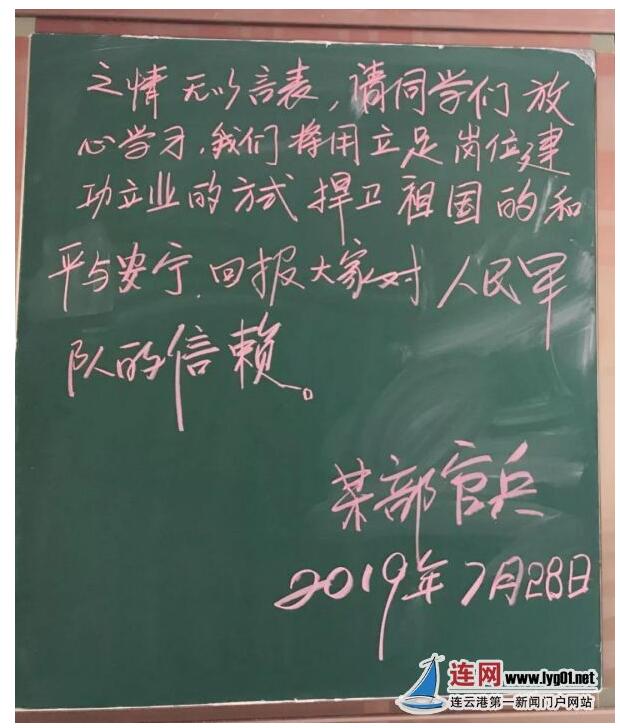 之情无以言表，请同学们放
心学习，我们将用立足岗位建
功立业的方式捍卫祖国的和
平与安宁，回报大家对人民军
队的信赖。
某部官兵
2019年7月28日
连网 www.lyg01.net
连云港第一新闻门户网站